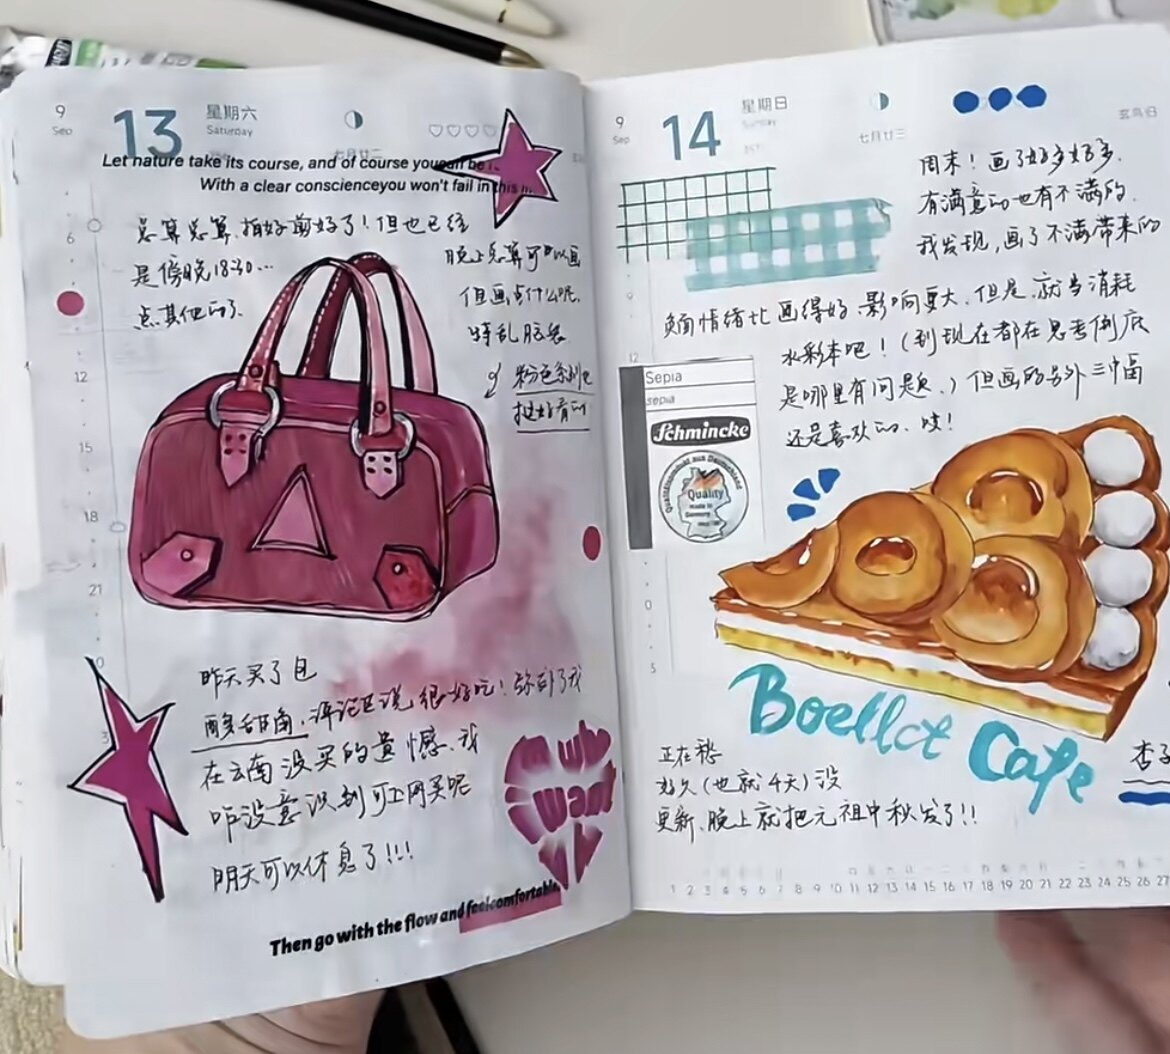 9
Sep
13
星期六
Saturday
七月廿二
Let nature take its course, and of course you can be
With a clear conscienceyou won't fail in this
总算总算,拍好剪好了!但也已经
是傍晚18:30...
点其他的了.
晚上总算可以画
但画点什么呢.
特乱脑袋
粉色系列也
挺好看的
6
12
15
18
21
昨天买了包
酸多甜角,评论区说很好吃!弥补了我
在云南没买的遗憾.我
咋没意识到可以网买呢
明天可以休息了!!!
want
Then go with the flow and feelcomfortable
9
Sep
14
星期日
Sunday
七月廿三
周末!画了好多好多.
有满意的也有不满的.
我发现,画了不满带来的
负面情绪比画得好,影响更大.但是,就当消耗
水彩本吧!(到现在都在思考倒底
是哪里有问题.)但画的另外三幅
还是喜欢的.哎!
9
12
Sepia
sepia
Schmincke
Qualitätsprodukt aus Deutschland
Quality
made in
Germany
Boellct Cafe
正在秒
好久(也就4天)没
更新.晚上就把元祖中秋发了!!
杏子
1 2 3 4 5 6 7 8 9 10 11 12 13 14 15 16 17 18 19 20 21 22 23 24 25 26 27